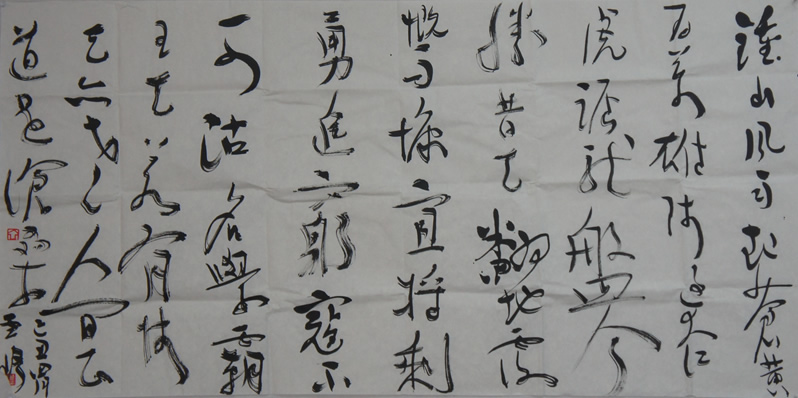 鐘山风雨起蒼黄
百万雄师过大江
虎踞龙盤今
勝昔天翻地覆
慨而慷宜将剩
勇追窮寇不
可沽名學霸
王天若有情
天亦老人间正
道是滄桑
己丑